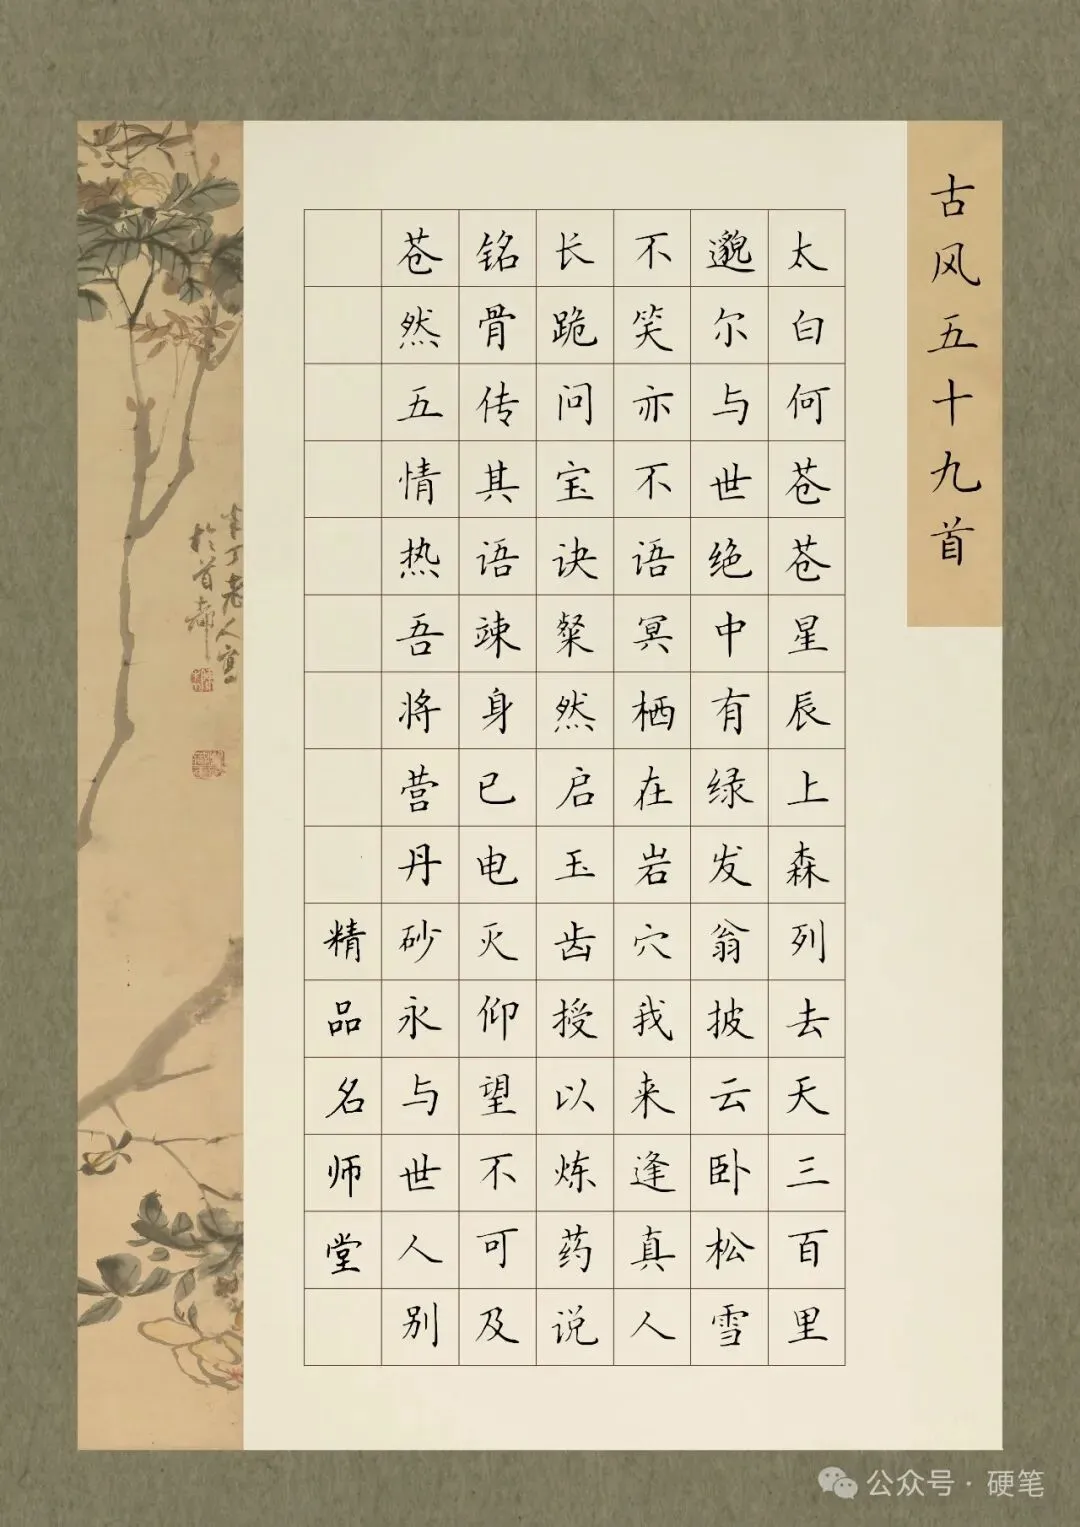 古风五十九首
太白何苍苍星辰上森列去天三百里
邈尔与世绝中有绿发翁披云卧松雪
不笑亦不语冥栖在岩穴我来逢真人
长跪问宝诀粲然启玉齿授以炼药说
铭骨传其语竦身已电灭仰望不可及
苍然五情热吾将营丹砂永与世人别
精品名师堂
辛丁老人宾
於首都
公众号·硬笔